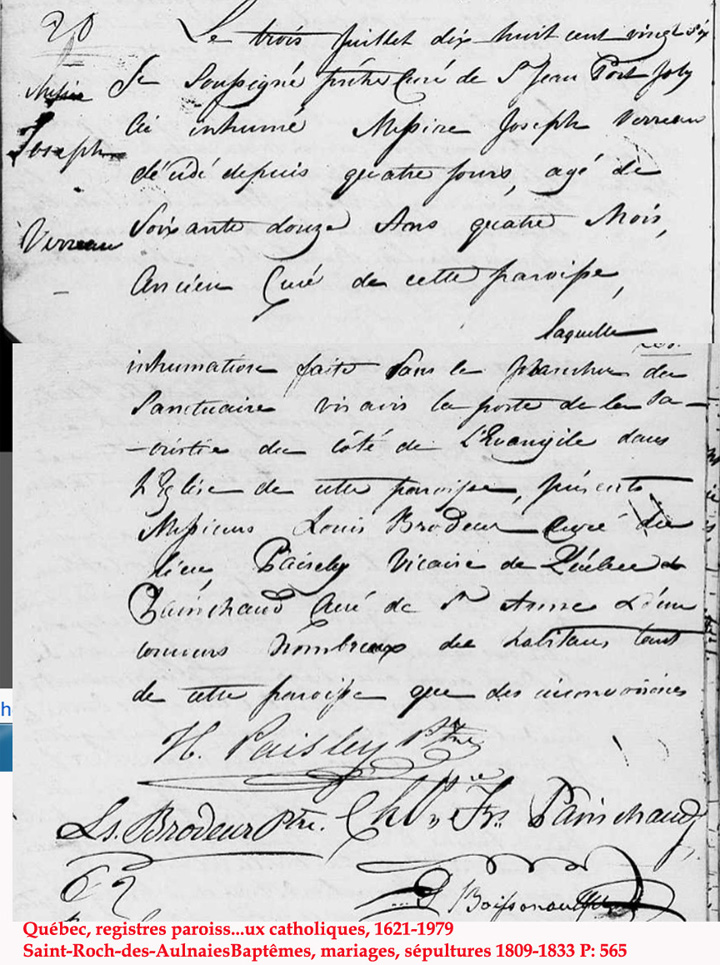 Le trois Juillet dix huit cent vingt six
Messire
Je Soussigné prêtre Curé de St Jean Port Joly
Joseph
ai inhumé Messire Joseph Verreau
décédé depuis quatre jours, agé de
Verreau
Soixante douze Ans quatre Mois,
Ancien Curé de cette paroisse,
laquelle
inhumation faite dans le plancher du
Sanctuaire vis avis la porte de la Sa-
-cristie du côté de L'Evangile dans
L'Eglise de cette paroisse, présents
Messieurs Louis Brodeur Curé du
lieu, Paisely Vicaire de Québec &
Painchaud Curé de Ste Anne & d'un
concours Nombreux de habitans tant
de cette paroisse que des circonvoisines
H. Paisley Ptre
Ls. Brodeur Ptre. Chs Frs. Painchaud
Boissonnault
h
Québec, registres paroiss...ux catholiques, 1621-1979
Saint-Roch-des-AulnaiesBaptêmes, mariages, sépultures 1809-1833 P: 565